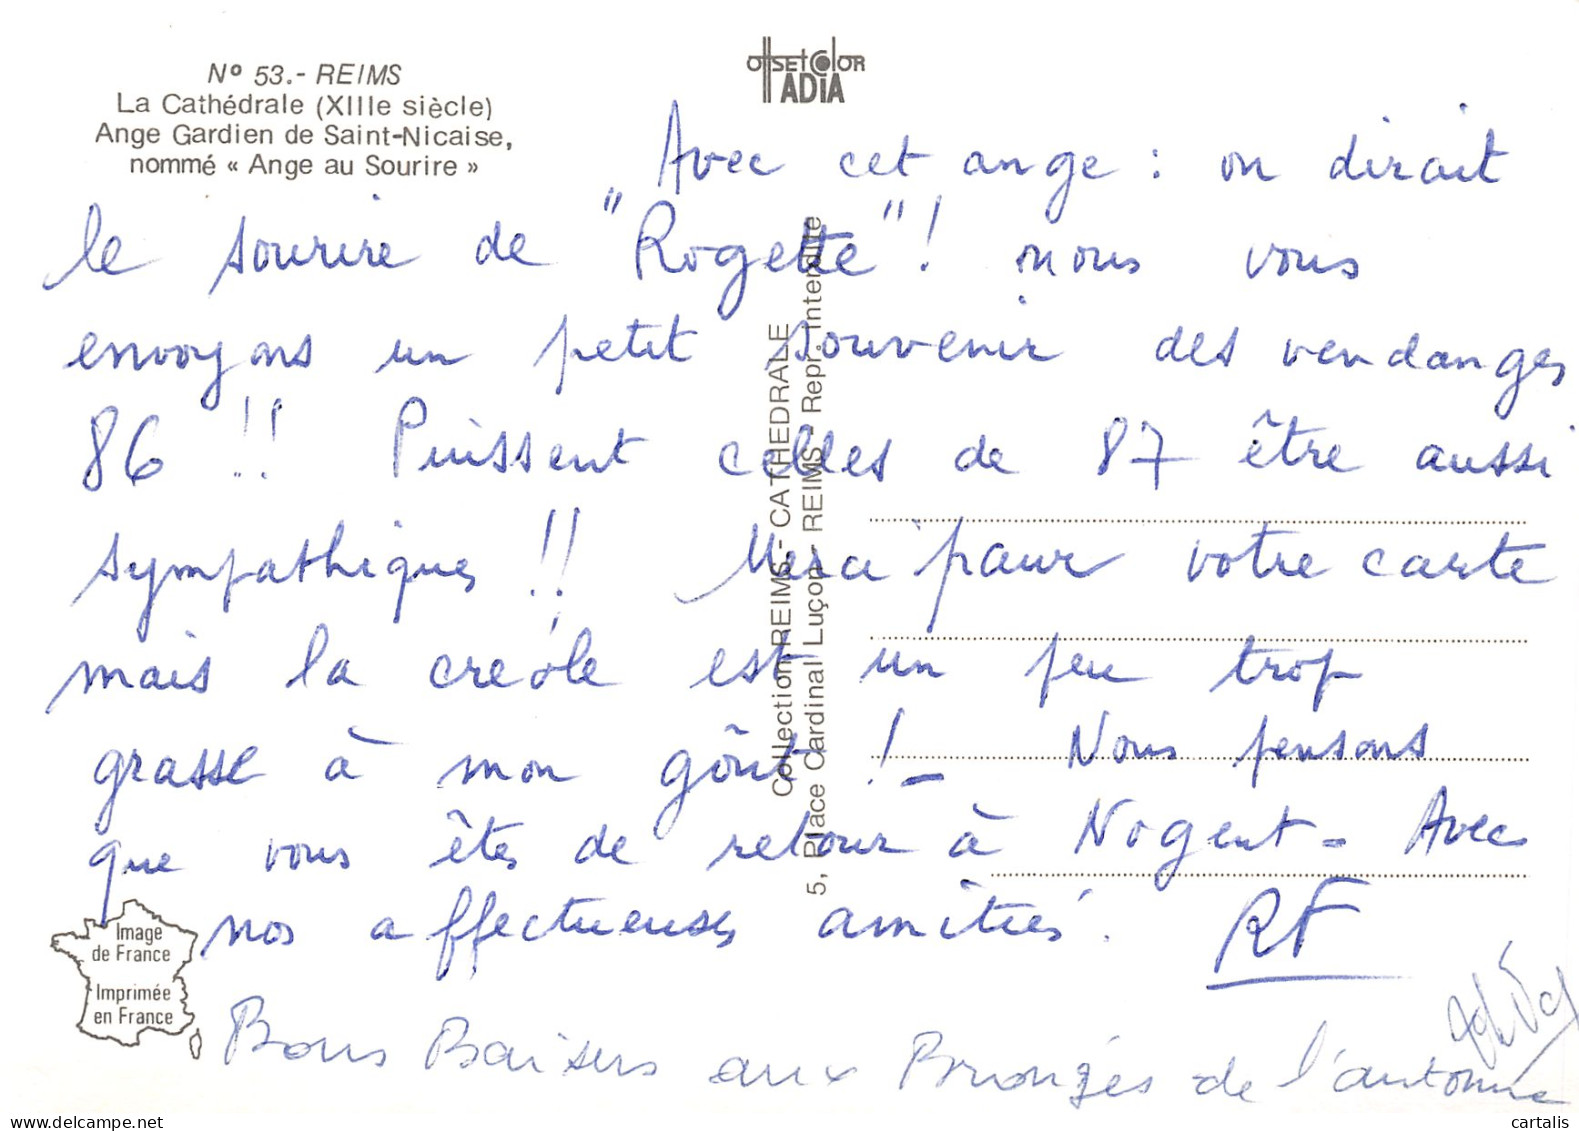 N° 53.- REIMS
La Cathédrale (XIIIe siècle)
Ange Gardien de Saint-Nicaise,
nommé « Ange au Sourire »
OffSEt COlOR
ADiA
Avec cet ange : on dirait
le sourire de "Rogette" ! nous vous
envoyons un petit souvenir des vendanges
86 !! Puissent celles de 87 être aussi
sympathiques !! Merci pour votre carte
mais la créole est un peu trop
grasse à mon goût ! _ Nous pensons
que vous êtes de retour à Nogent - Avec
nos affectueuses amitiés. RF
Bons Baisers aux Bronzés de l'automne
Collection REIMS - CATHEDRALE
5, Place Cardinal Luçon - REIMS - Repr. Interdite
Image
de France
Imprimée
en France
cartalis